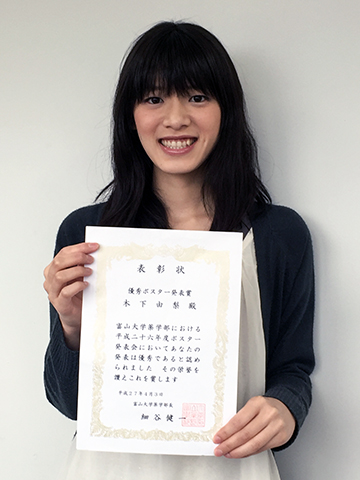 表彰状
優秀ポスター発表賞
木下由梨 殿
富山大学薬学部における
平成二十六年度ポスター
発表会においてあなたの
発表は優秀であると認め
られました その栄誉を
讃えこれを賞します
平成27年4月3日
富山大学薬学部長
細谷健一